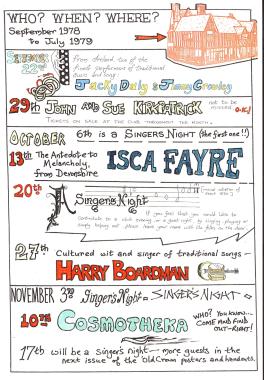 WHO? WHEN? WHERE?
September 1978
to July 1979
SEPTEMBER
22nd
From Ireland, two of the
finest performers of traditional
music and song:
Jacky Daly & Jimmy Crowley
29th JOHN AND SUE KIRKPATRICK not to be
missed O.K!
TICKETS ON SALE AT THE CLUB THROUGHOUT THE MONTH.
OCTOBER 6th is a SINGERS NIGHT (the first one!!)
13th The Antedote to
Melancholy,
from Devonshire
ISCA FAYRE
20th A Singers Night
If you feel that you would like to
contribute to a club evening, or a guest night, by singing, playing or
simply helping out please leave your name with the folks on the door
27th Cultured wit and singer of traditional songs -
HARRY BOARDMAN
NOVEMBER 3rd Singers Night = SINGER'S NIGHT
10th COSMOTHEKA
WHO? YOU KNOW...
COME AND FIND
OUT - RIGHT!
17th will be a singer's night - more guests in the
next issue of the Old Crown posters and handouts.